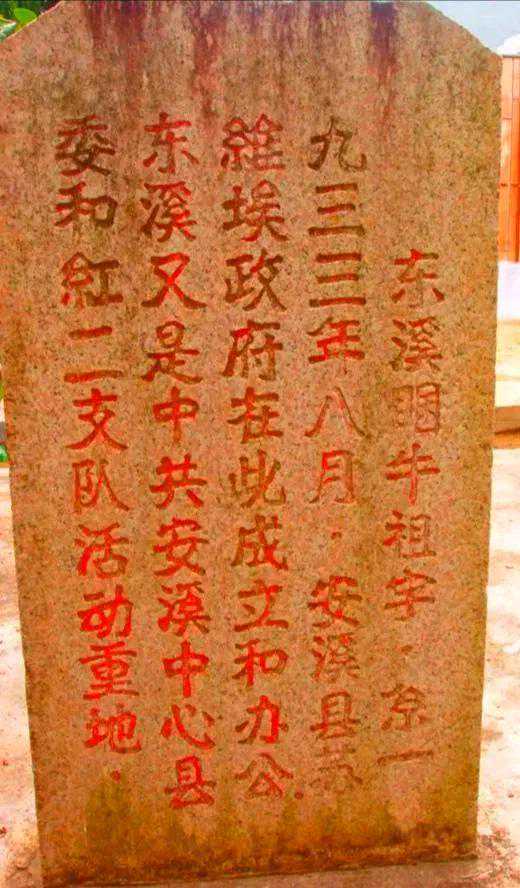 东溪眠牛祖宇·系一
九三三年八月·安溪县苏
維埃政府在此成立和办公.
东溪又是中共安溪中心县
委和紅二支队活动重地.